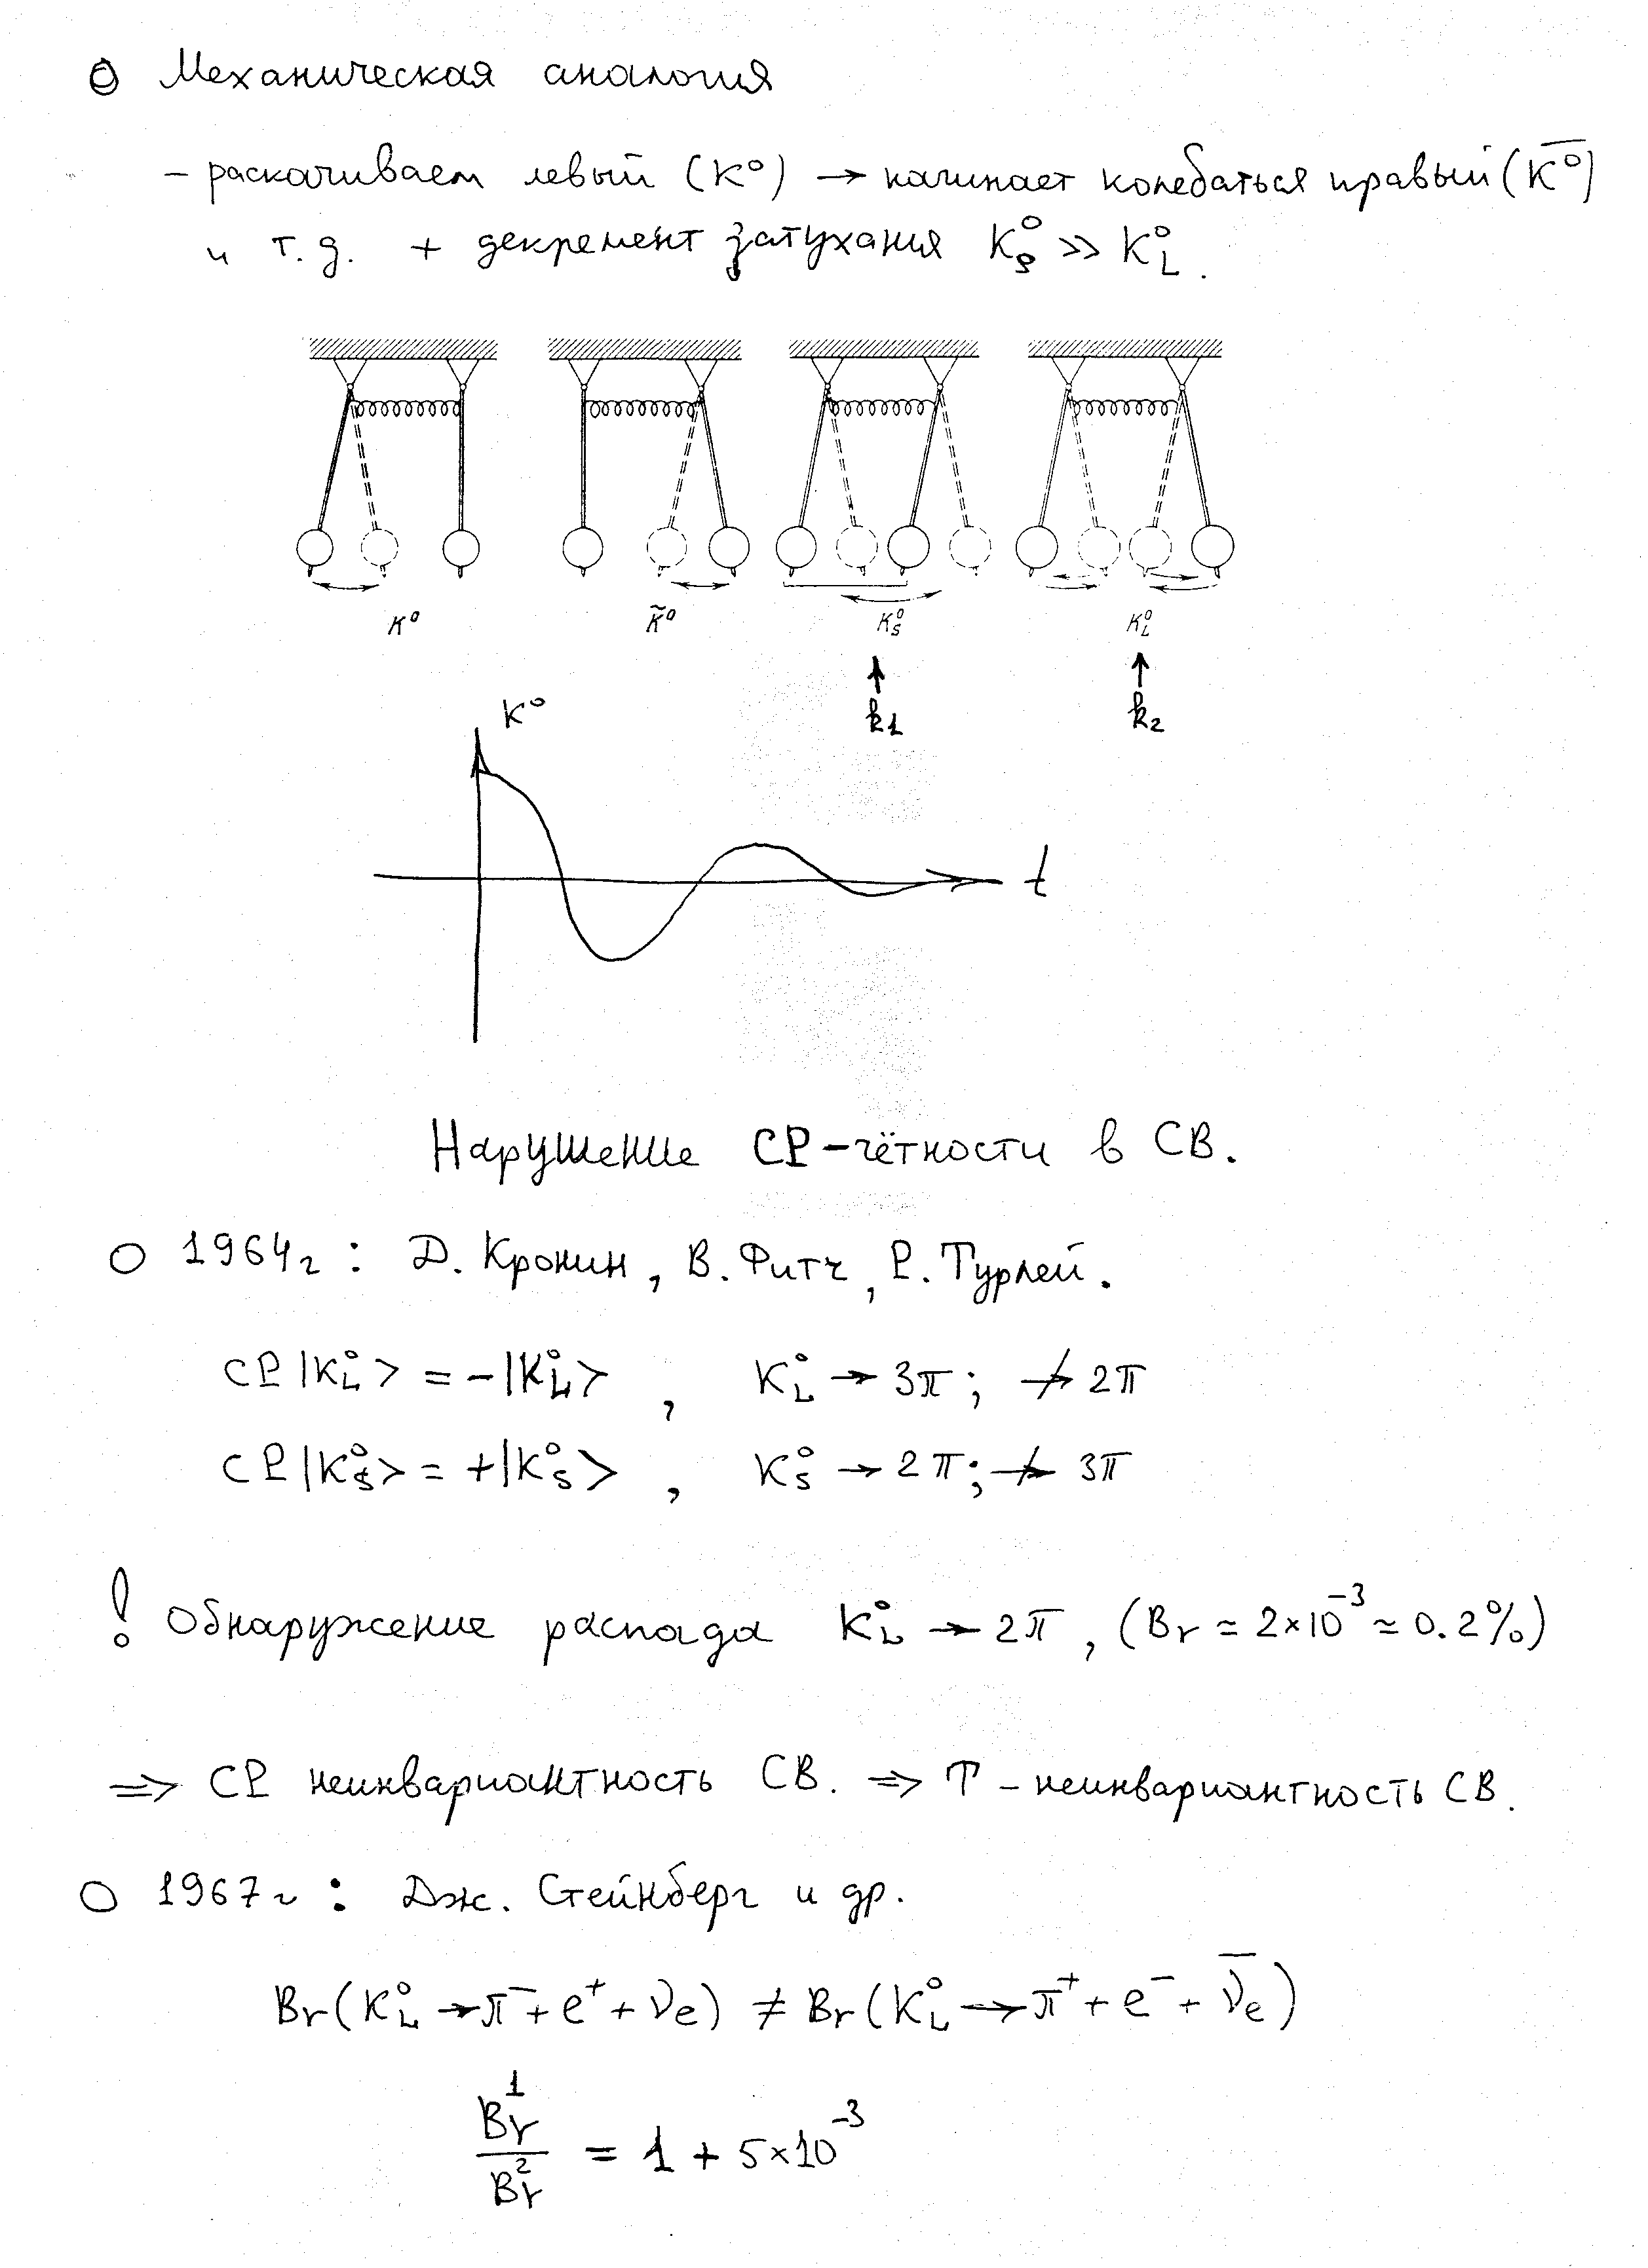 Механическая аналогия
– раскачиваем левый (K⁰) → начинает колебаться правый (K̅⁰)
и т.д. + декремент затухания K⁰_S >> K⁰_L.
K⁰ K̃⁰ K⁰_S K⁰_L
↑ ↑
k₁ k₂
K⁰
t
Нарушение CP-чётности в СВ.
○ 1964г: Д. Кронин, В. Фитч, Р. Турлей.
CP|K⁰_L> = -|K⁰_L> , K⁰_L → 3π; ↛ 2π
CP|K⁰_S> = +|K⁰_S> , K⁰_S → 2π; ↛ 3π
! Обнаружение распада K⁰_L → 2π, (Br ≃ 2×10⁻³ ≃ 0.2%)
⇒ CP неинвариантность СВ. ⇒ T – неинвариантность СВ.
○ 1967г: Дж. Стейнберг и др.
Br(K⁰_L → π⁻ + e⁺ + ν_e) ≠ Br(K⁰_L → π⁺ + e⁻ + ν̅_e)
Br¹
Br² = 1 + 5×10⁻³